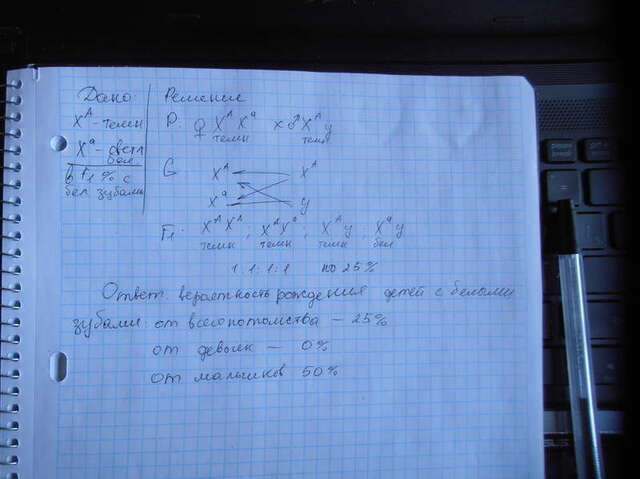 Дано: Решение
X^A - темн P: ♀ X^A X^a x ♂ X^A y
X^a - светл темн темн
бел
в F1 % с G X^A X^A
бел зубами X^a y
F1: X^A X^A ; X^A X^a ; X^A y ; X^a y
темн темн темн бел
1:1:1:1 по 25%
Ответ: вероятность рождения детей с белыми
зубами: от всего потомства - 25%
от девочек - 0%
от мальчиков 50%